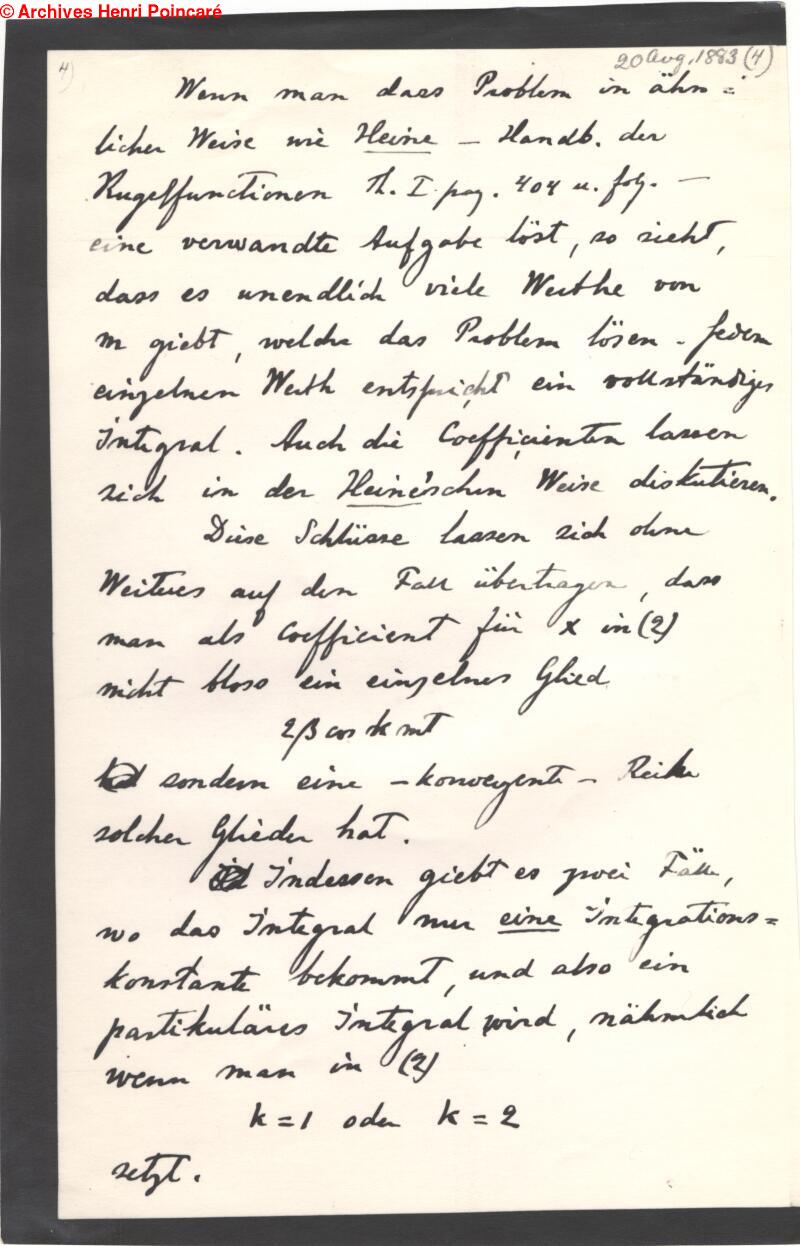 © Archives Henri Poincaré
4)
20 Aug. 1883 (4)
Wenn man dass Problem in ähn=
licher Weise wie Heine – Handb. der
Kugelfunctionen Th. I pag. 404 u. folg. –
eine verwandte Aufgabe löst, so sieht,
dass es unendlich viele Werthe von
m giebt, welche das Problem lösen. Jedem
einzelnen Werth entspricht ein vollständiges
Integral. Auch die Coefficienten lassen
sich in der Heine'schen Weise diskutieren.
Diese Schlüsse lassen sich ohne
Weiteres auf den Fall übertragen, dass
man als Coefficient für x in (2)
nicht bloss ein einzelnes Glied
2β cos k mt
sondern eine – konvergente – Reihe
solcher Glieder hat.
Indessen giebt es zwei Fälle,
wo das Integral nur eine Integrations=
konstante bekommt, und also ein
partikuläres Integral wird, nähmlich
wenn man in (2)
k = 1 oder k = 2
setzt.